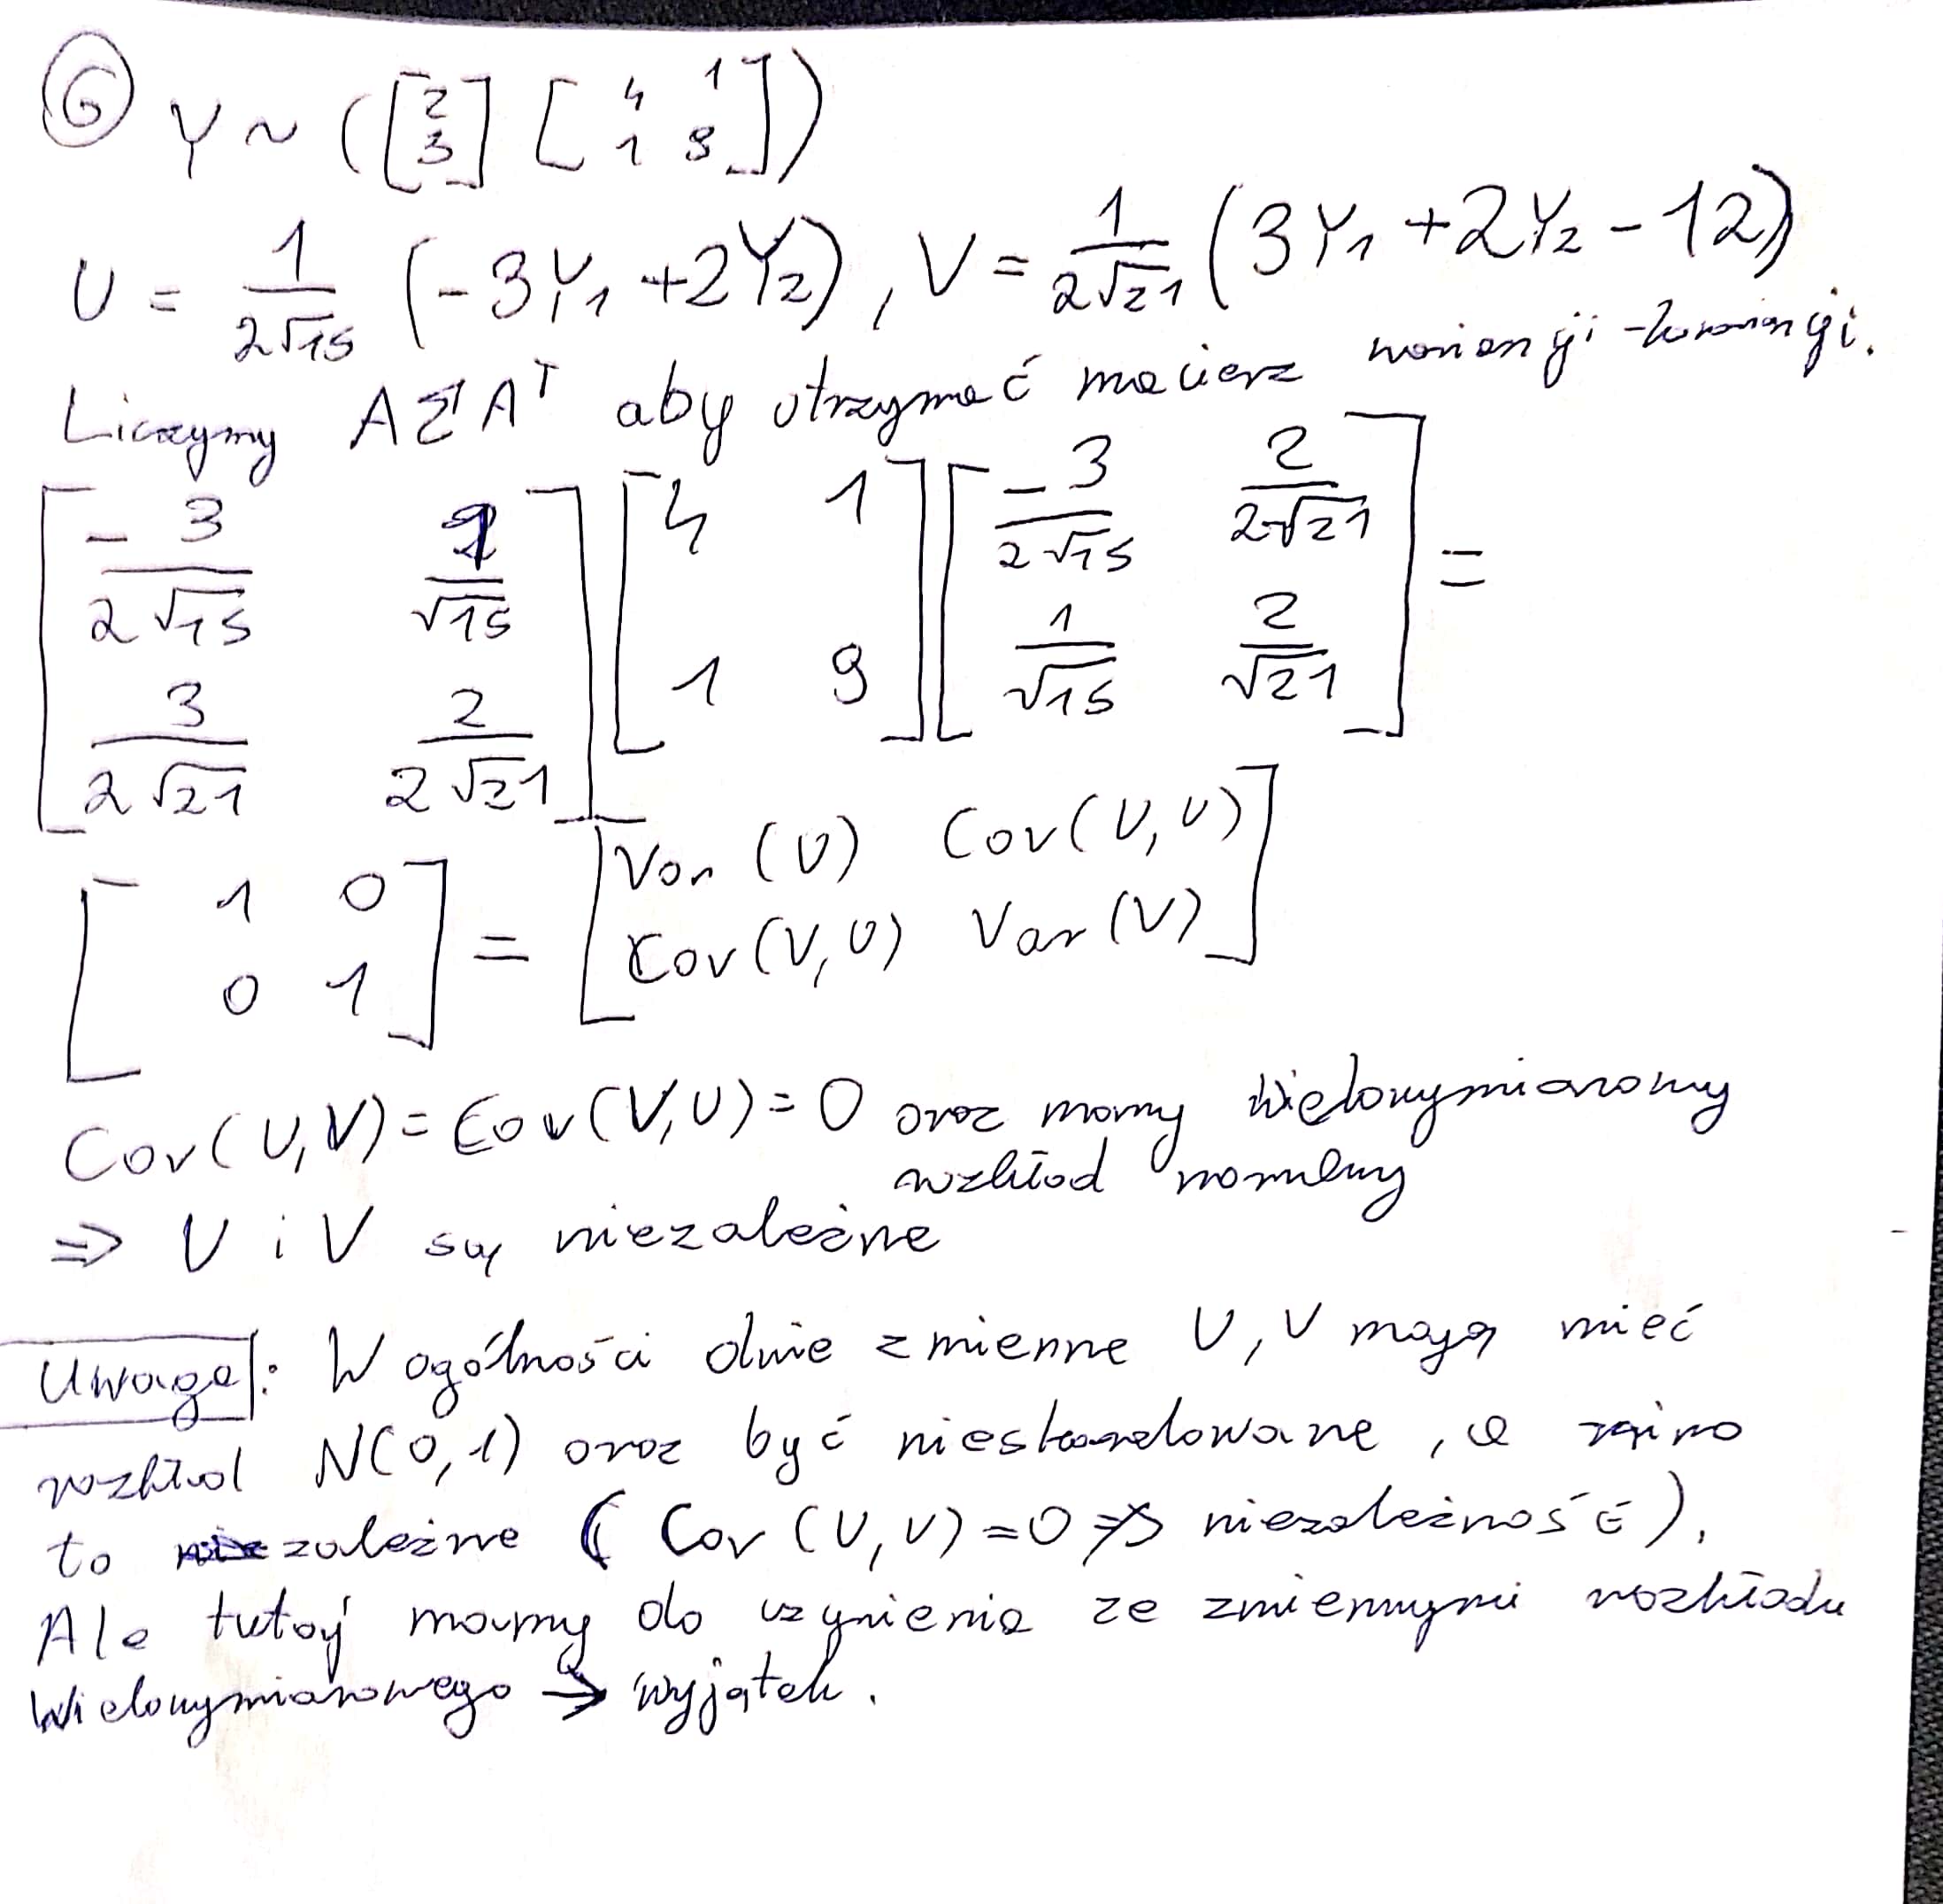 6 Y ~ ([2 3] [4 1 1 9])
U = 1/(2√15) (-3Y₁ + 2Y₂), V = 1/(2√21) (3Y₁ + 2Y₂ - 12)
Liczymy AΣAᵀ aby otrzymać macierz wariancji-kowariancji.
[-3/(2√15) 1/√15 3/(2√21) 2/(2√21)] [4 1 1 9] [-3/(2√15) 2/(2√21) 1/√15 2/√21] =
[1 0 0 1] = [Var(U) Cov(U,V) Cov(V,U) Var(V)]
Cov(U,V) = Cov(V,U) = 0 oraz mamy wielowymiarowy
rozkład normalny
⇒ U i V są niezależne
Uwaga: W ogólności dwie zmienne U, V mogą mieć
rozkład N(0,1) oraz być nieskorelowane, a mimo
to zależne (Cov(U,V)=0 ⇏ niezależność).
Ale tutaj mamy do czynienia ze zmiennymi rozkładu
wielowymiarowego → wyjątek.